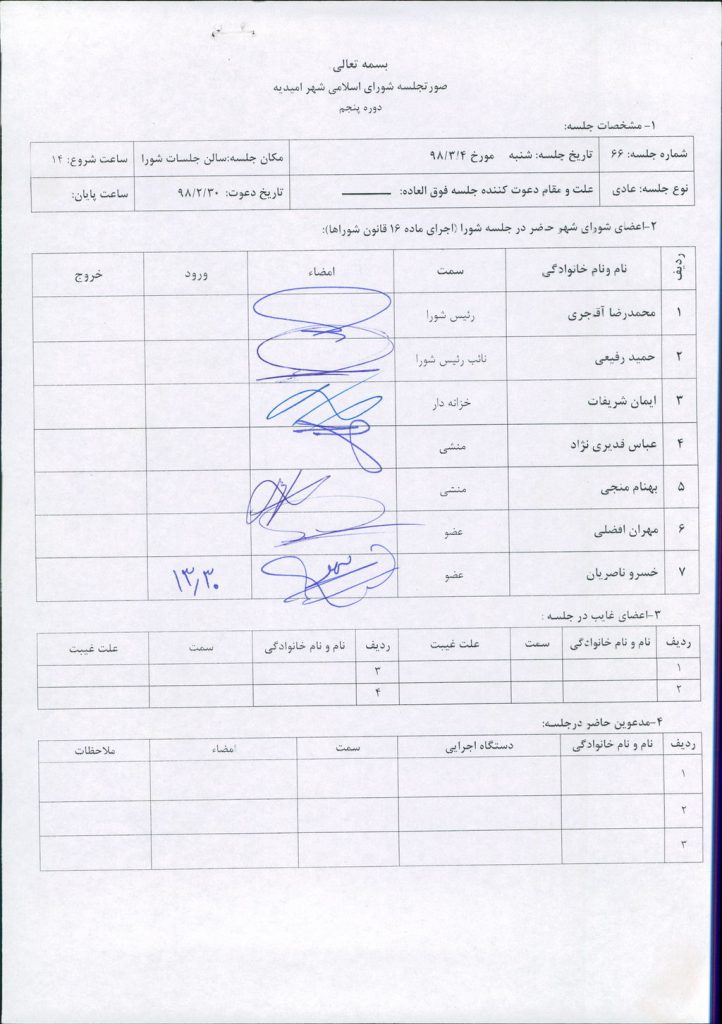 بسمه تعالی
صورتجلسه شورای اسلامی شهر امیدیه
دوره پنجم
۱- مشخصات جلسه:
شماره جلسه: ۶۶ تاریخ جلسه: شنبه مورخ ۹۸/۳/۴ مکان جلسه:سالن جلسات شورا ساعت شروع: ۱۴
نوع جلسه: عادی علت و مقام دعوت کننده جلسه فوق العاده: تاریخ دعوت: ۹۸/۲/۳۰ ساعت پایان:
۲-اعضای شورای شهر حضر در جلسه شورا (اجرای ماده ۱۶ قانون شوراها):
ردیف نام ونام خانوادگی سمت امضاء ورود خروج
۱ محمدرضا آقاجری رئیس شورا
۲ حمید رفیعی نائب رئیس شورا
۳ ایمان شریفات خزانه دار
۴ عباس قدیری نژاد منشی
۵ بهنام منجی منشی
۶ مهران افضلی عضو
۷ خسرو ناصریان عضو ۱۳/۳۰
۳-اعضای غایب در جلسه :
ردیف نام و نام خانوادگی سمت علت غیبت ردیف نام و نام خانوادگی سمت علت غیبت
۱ ۳
۲ ۴
۴-مدعوین حاضر درجلسه:
ردیف نام و نام خانوادگی دستگاه اجرایی سمت امضاء ملاحظات
۱
۲
۳